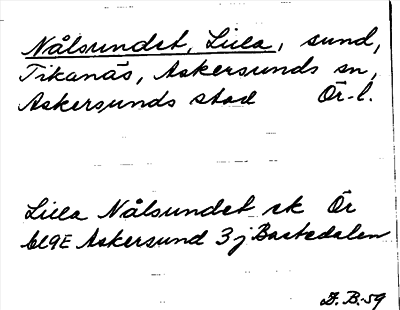 Nålsundet, Lilla, sund,
Tikanäs, Askersunds sn,
Askersunds stad Ör. l.
Lilla Nålsundet rk Ör
bl9E Askersund 3j Bastedalen
D. B. -59